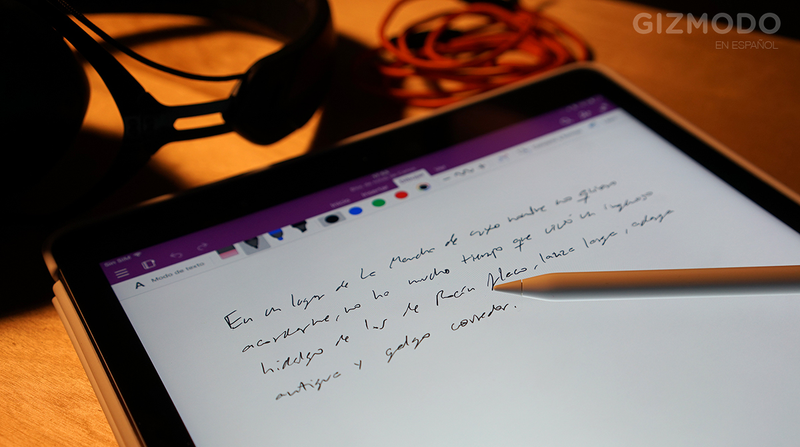 GIZMODO
EN ESPAÑOL
Sin SIM
A Modo de texto
En un lugar de La Mancha de cuyo nombre no quiero
acordarme, no ha mucho tiempo que vivió un ingenioso
hidalgo de los de Rocín flaco, lanza larga, adarga
antigua y galgo corredor.